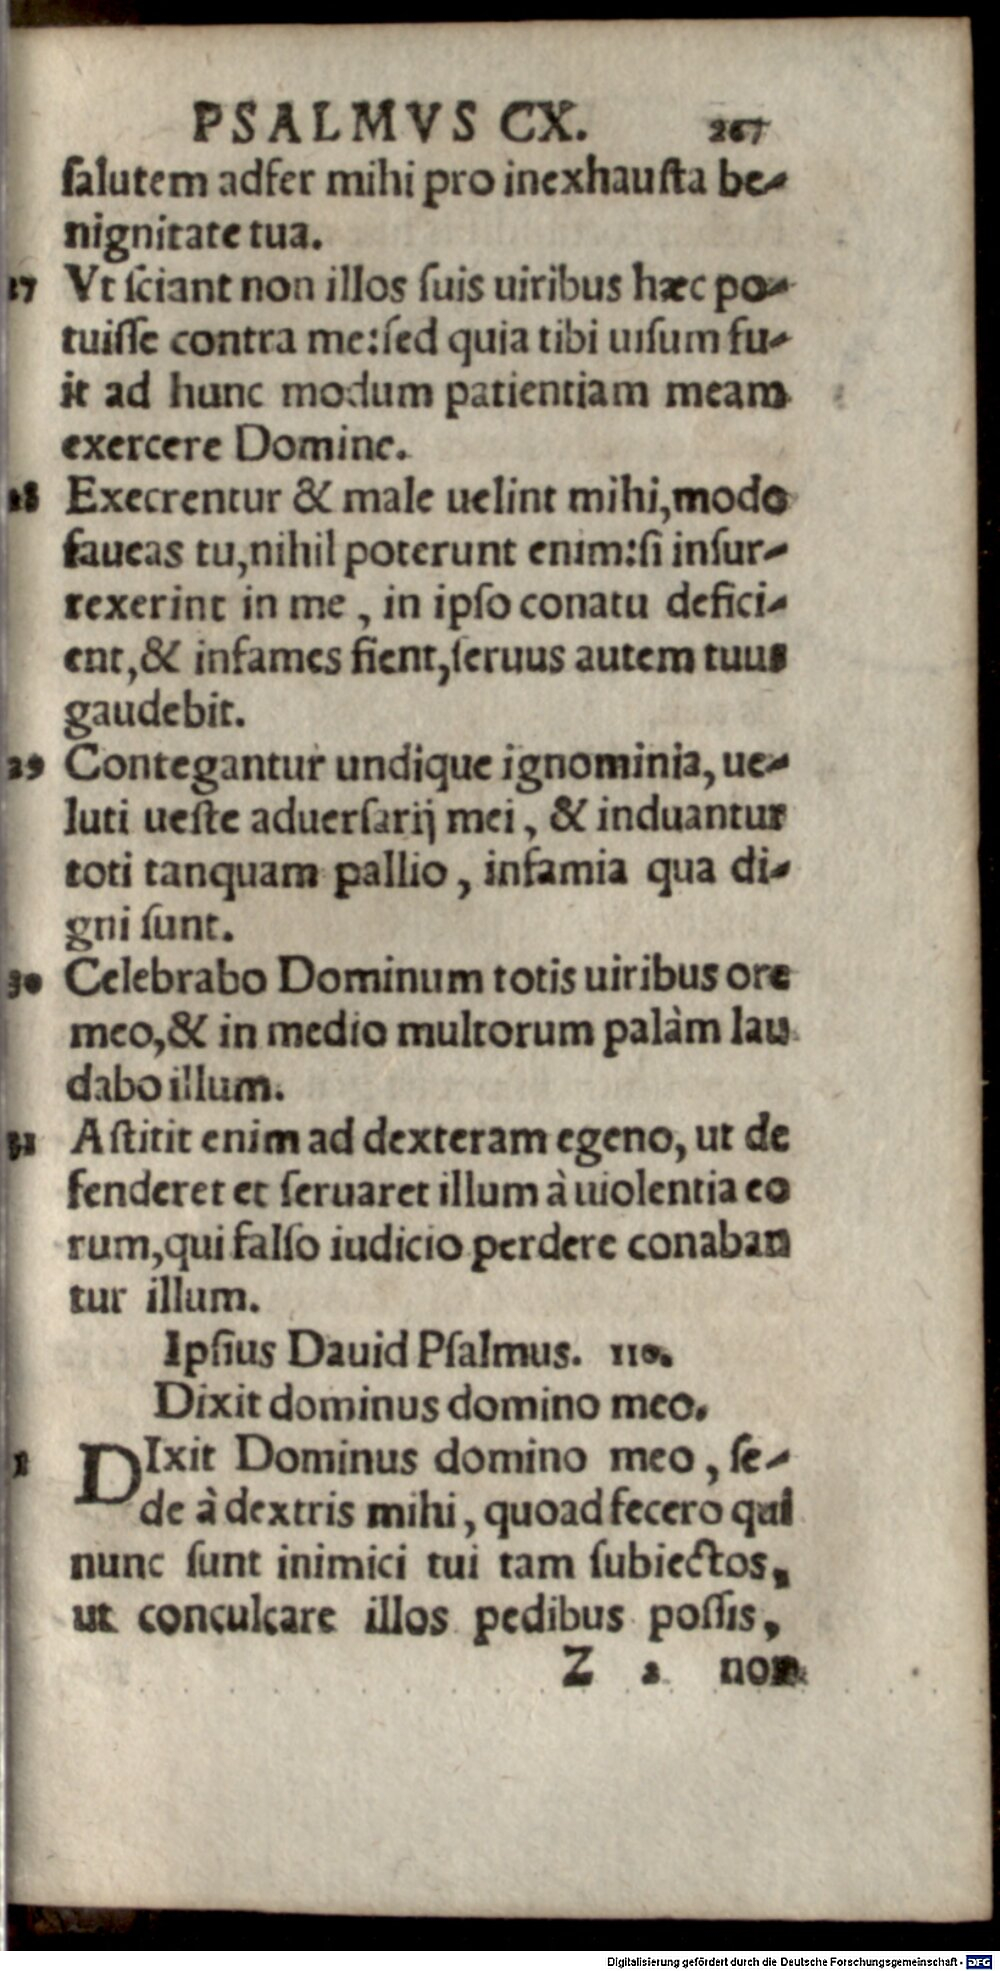 PSALMVS CX. 267
ſalutem adfer mihi pro inexhauſta be-
nignitate tua.
27 Vt ſciant non illos ſuis uiribus hæc po-
tuiſſe contra me:ſed quia tibi uiſum fu-
it ad hunc modum patientiam meam
exercere Domine.
28 Execrentur & male uelint mihi,modo
faueas tu,nihil poterunt enim:ſi inſur-
rexerint in me, in ipſo conatu defici-
ent,& infames fient,ſeruus autem tuus
gaudebit.
29 Contegantur undique ignominia, ue-
luti ueſte aduerſarij mei, & induantur
toti tanquam pallio, infamia qua di-
gni ſunt.
30 Celebrabo Dominum totis uiribus ore
meo,& in medio multorum palàm lau
dabo illum.
31 Aſtitit enim ad dexteram egeno, ut de
fenderet et ſeruaret illum à uiolentia eo
rum,qui falſo iudicio perdere conaban
tur illum.
Ipſius Dauid Pſalmus. 110.
Dixit dominus domino meo.
1 DIxit Dominus domino meo, ſe-
de à dextris mihi, quoad fecero qui
nunc ſunt inimici tui tam ſubiectos,
ut conculcare illos pedibus poſſis,
Z 2 non
Digitalisierung gefördert durch die Deutsche Forschungsgemeinschaft - DFG